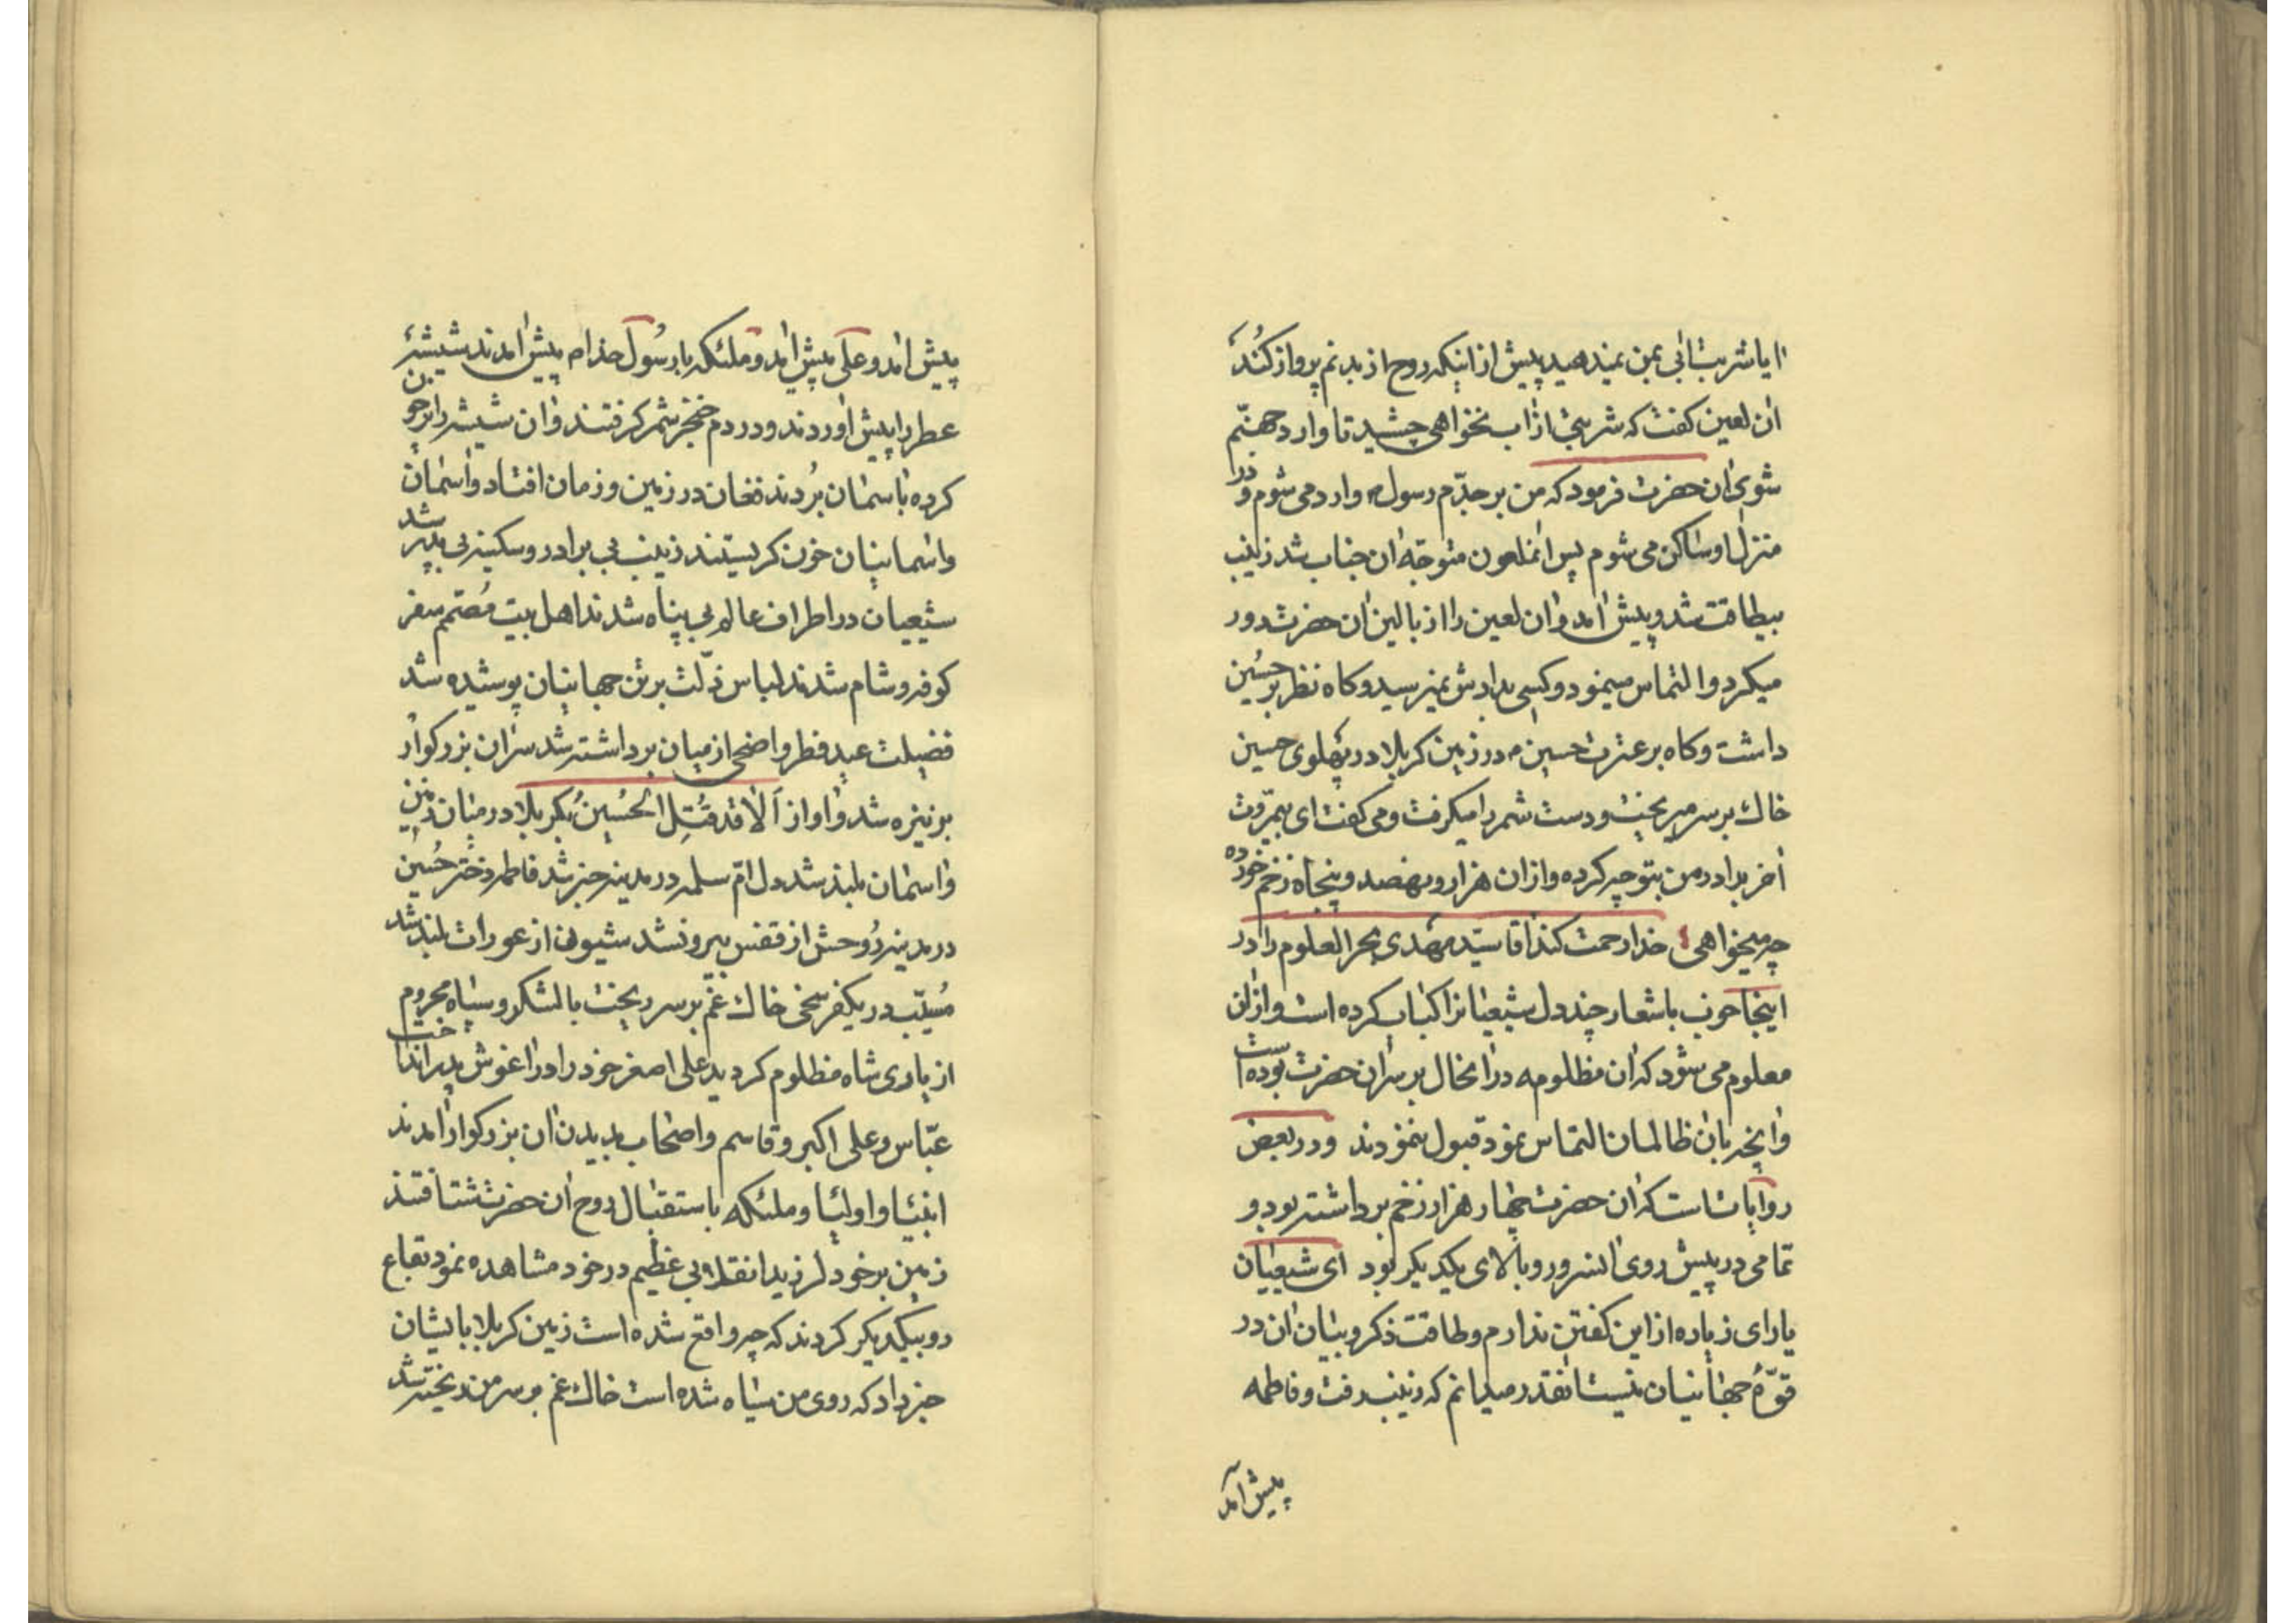 ایا شربت ابی بمن نمیدهید پیش از اینکه روح از بدنم پرواز کُند
ان لعین کفت که شربتی از اب نخواهی چشید تا وارد جهنّم
شوی ان حضرت فرمود که من بر جدّم رسول م وارد می شوم و در
منزل او ساکن می شوم پس انملعون متوجّه ان جناب شد زینب
بیطاقت شد و پیش امد و ان لعین را از بالین ان حضرت دور
میکرد و التماس مینمود و کسی بدادش نمیرسید و کاه نظر بر حسُین
داشت و کاه بر عترت حسین م در زمین کربلا در پهلوی حسین
خاك بر سر میریخت و دست شمر را میکرفت و می کفت ای بیمرّوت
اخر برادر من بتو چه کرده و از ان هزار و نهصد و پنجاه زخم خورده
چه میخواهی خدا رحمت کند اقا سیّد مهدی بحر العلوم را در
اینجا خوب باشعار چند دل شیعیانرا کباب کرده است و از ان
معلوم می شود که ان مظلومه در انحال بر سر ان حضرت بوده است
و انچه بان ظالمان التماس نمود قبول ننمودند و در بعض
روایات است که ان حضرت چهار هزار زخم برداشته بود و
تمامی در پیش روی انسرور و بالای یکدیکر بود ای شیعیان
یارای زیاده از این کفتن ندارم و طاقت ذکر و بیان ان در
قوّهٔ جهانیان نیست انقدر میدانم که زینب رفت و فاطمه
پیش آمد
پیش امد و علی پیش امد و ملئکه با رسُول خدا م پیش امدند شیشهٔ
عطر را پیش اوردند و در دم خنجر شمر کرفتند و ان شیشه را پر خون
کرده باسمان بُردند فغان در زمین و زمان افتاد و اسمان
و اسمانیان خون کریستند زینب بی برادر و سکینه بی پدر شد
شیعیان در اطراف عالم بی پناه شدند اهل بیت مُصمّم سفر
کوفه و شام شدند لباس ذلّت بر تن جهانیان پوشیده شد
فضیلت عید فطر و اضحی از میان برداشته شد سر ان بزرکوار
بر نیزه شد و اواز اَلا قد قُتِل الحُسینُ بکربلا در میان زمین
و اسمان بلند شد دل امّ سلمه در مدینه خبر شد فاطمه دختر حُسین
در مدینه رُوحش از قفس بیرون شد شیون از عورات بلند شد
مُسیّب در یکفرسخی خاك غم بر سر ریخت با لشکر و سپاه محروم
از یاری شاه مظلوم کردید علی اصغر خود را در اغوش پدر انداخت
عبّاس و علی اکبر و قاسم و اصحاب بدیدن ان بزرکوار امدند
انبیا و اولیا و ملئکه باستقبال روح ان حضرت شتافتند
زمین بر خود لرزید انقلابی عظیم در خود مشاهده نمود بقاع
رو بیکدیکر کردند که چه واقع شده است زمین کربلا بایشان
خبر داد که روی من سیاه شده است خاك غم بر سر من ریخته شد